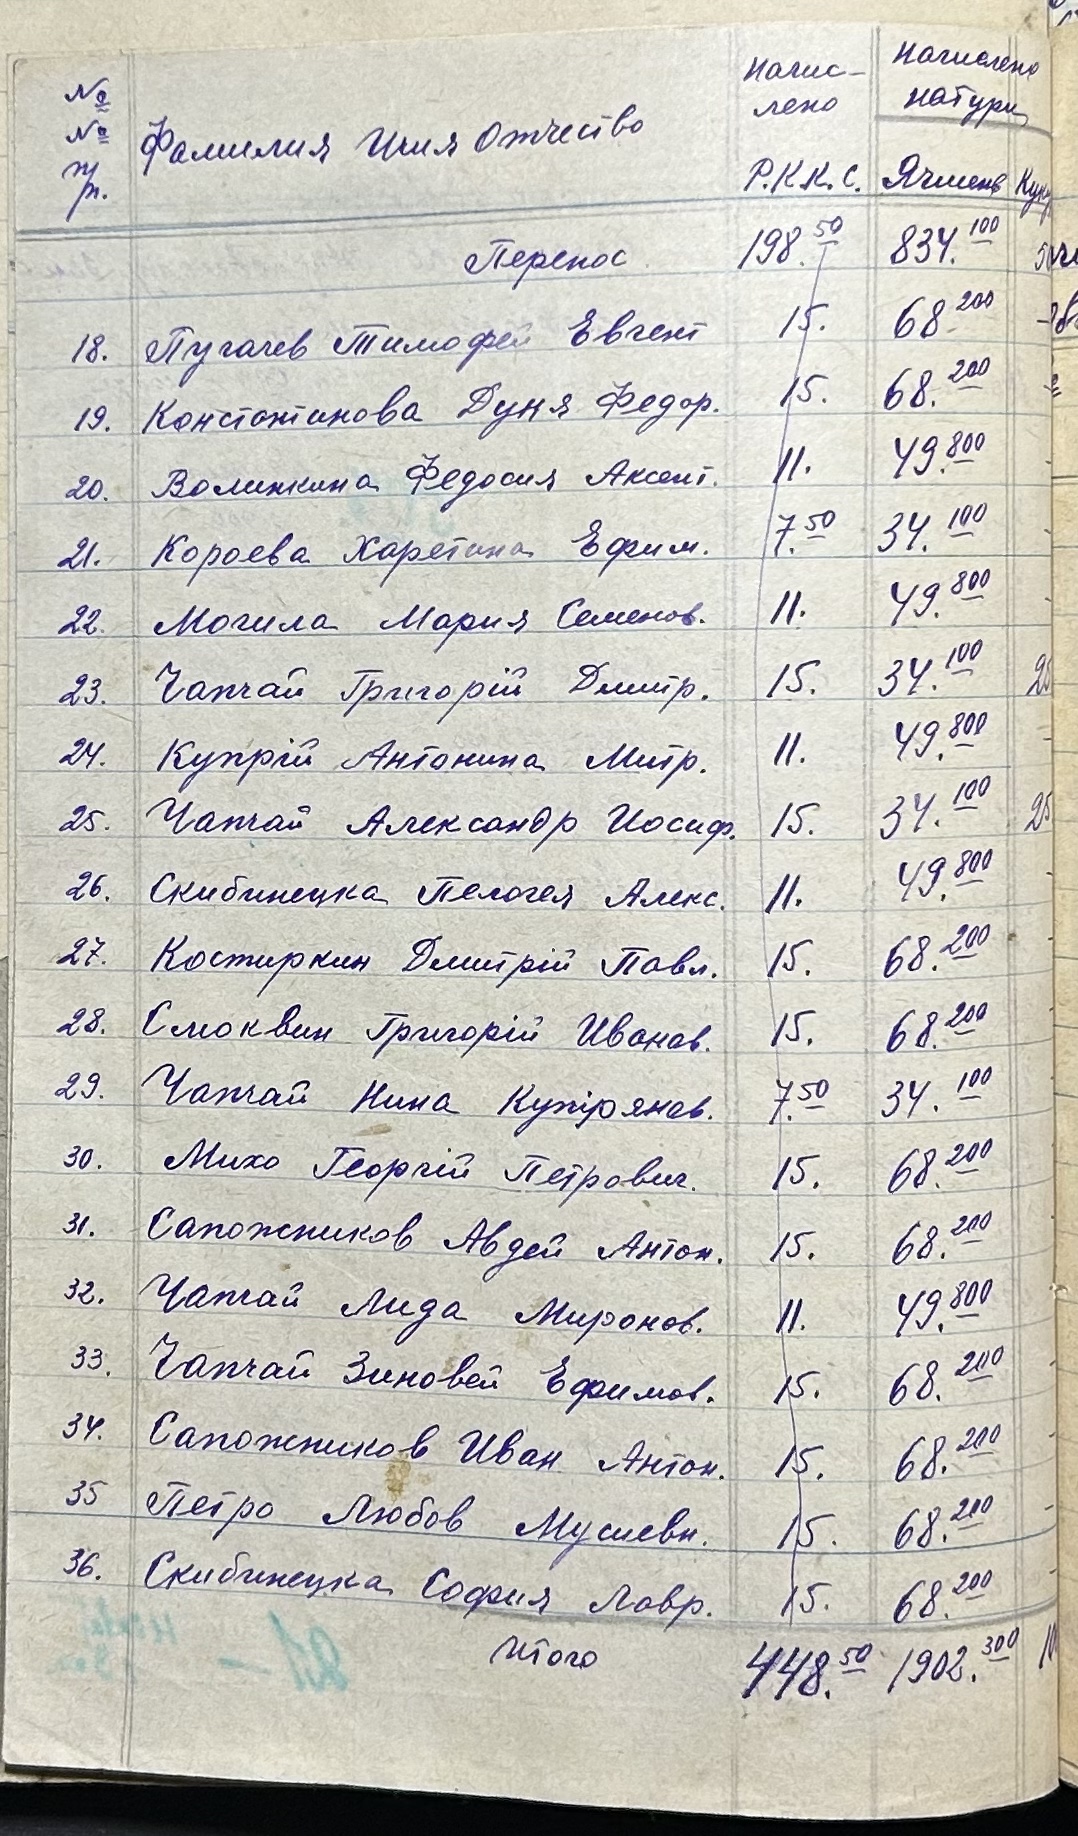 № № пп. Фамилия Имя Отчество Начис-лено Р.К.К.С. Начислено натури Ячмень
Перенос 198.50 834.100
18. Пугачев Тимофей Евгент 15. 68.200
19. Константинова Дуня Федор. 15. 68.200
20. Волинкина Федосия Аксент. 11. 49.800
21. Короева Харетина Ефим. 7.50 34.100
22. Могила Мария Семенов. 11. 49.800
23. Чапчай Григорій Дмитр. 15. 34.100
24. Купрій Антонина Митр. 11. 49.800
25. Чапчай Александр Иосиф. 15. 34.100 25
26. Скибинецка Пелогея Алекс. 11. 49.800
27. Костиркин Дмитрій Павл. 15. 68.200
28. Смоквин Григорій Иванов. 15. 68.200
29. Чапчай Нина Купріянов. 7.50 34.100
30. Михо Георгій Петрович. 15. 68.200
31. Сапожников Авдей Антон. 15. 68.200
32. Чапчай Лида Миронов. 11. 49.800
33. Чапчай Зиновей Ефимов. 15. 68.200
34. Сапожников Иван Антон. 15. 68.200
35 Петро Любов Мусиевн. 15. 68.200
36. Скибинецка София Лавр. 15. 68.200
Итого 448.50 1902.300